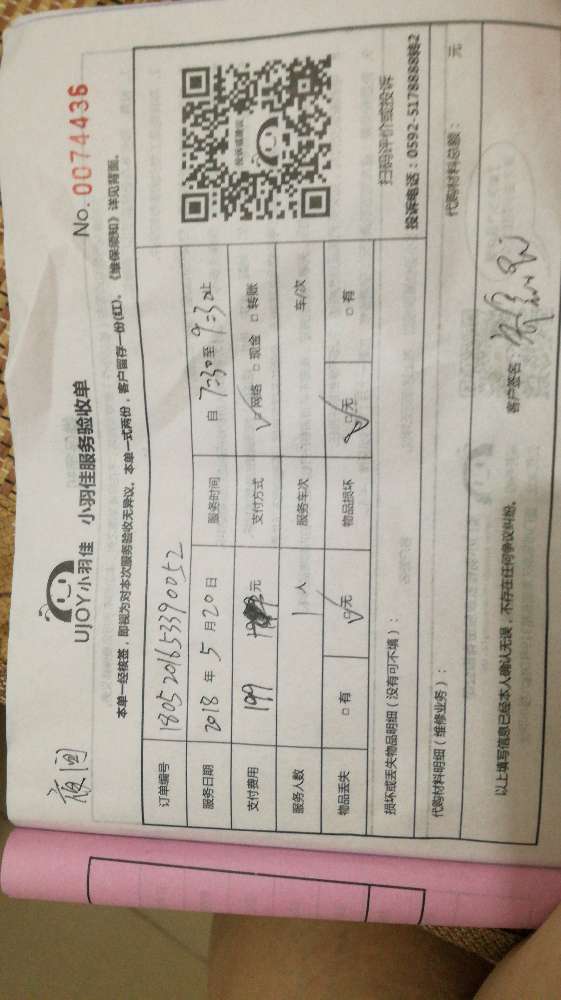 夜间
No. 0074436
UJOY小羽佳 小羽佳服务验收单
本单一经核签，即视为对本次服务验收无异议。本单一式两份，客户留存一份(红)。《维保须知》详见背面。
订单编号 1805201653390052
服务日期 2018 年 5 月 20 日 服务时间 自 7:30 至 9:30 止
支付费用 199 元 支付方式 ☑网络 □现金 □转账
服务人数 1 人 服务车次 车/次
物品丢失 □有 ☑无 物品损坏 ☑无 □有
投诉或建议
扫码评价或投诉
投诉电话：0592-5178888转2
损坏或丢失物品明细（没有可不填）：
代购材料明细（维修业务）： 代购材料总额： 元
以上填写信息已经本人确认无误，不存在任何争议纠纷。 客户签名：